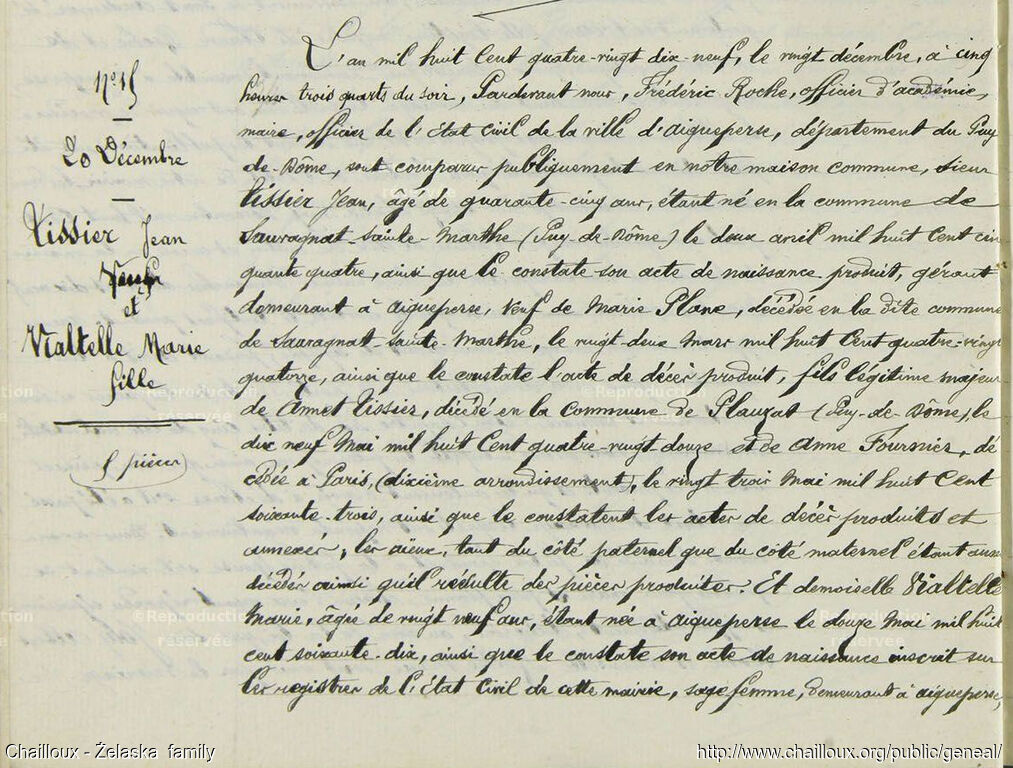 N° 45
20 Décembre
Tissier Jean
Veuf
et
Vialtelle Marie
fille
5 pièces
L'an mil huit cent quatre-vingt dix-neuf, le vingt décembre, à cinq
heures trois quarts du soir, Pardevant nous, Frédéric Roche, officier d'académie,
maire, officier de l'état civil de la ville d'Aigueperse, département du Puy
de-Dôme, sont comparus publiquement en notre maison commune, Sieur
Tissier Jean, âgé de quarante-cinq ans, étant né en la commune de
Sauvagnat-Sainte-Marthe (Puy-de-Dôme) le deux avril mil huit cent cin
quante quatre, ainsi que le constate son acte de naissance produit, gérant
demeurant à Aigueperse, veuf de Marie Plane, décédée en la dite commune
de Sauvagnat-Sainte-Marthe, le vingt-deux mars mil huit cent quatre-vingt
quatorze, ainsi que le constate l'acte de décès produit, fils légitime majeur
de Annet Tissier, décédé en la commune de Plauzat (Puy-de-Dôme), le
dix neuf Mai mil huit cent quatre-vingt-douze et de Anne Fournier, dé
cédée à Paris, (dixième arrondissement), le vingt trois Mai mil huit cent
soixante-trois, ainsi que le constatent les actes de décès produits et
annexés, les aïeux, tant du côté paternel que du côté maternel étant aussi
décédés ainsi qu'il résulte des pièces produites. Et demoiselle Vialtelle
Marie, âgée de vingt neuf ans, étant née à Aigueperse le douze Mai mil huit
cent soixante-dix, ainsi que le constate son acte de naissance inscrit sur
les registres de l'état civil de cette mairie, sage femme, demeurant à Aigueperse,
©Reproduction
réservée
Chailloux - Želaska family
http://www.chailloux.org/public/geneal/